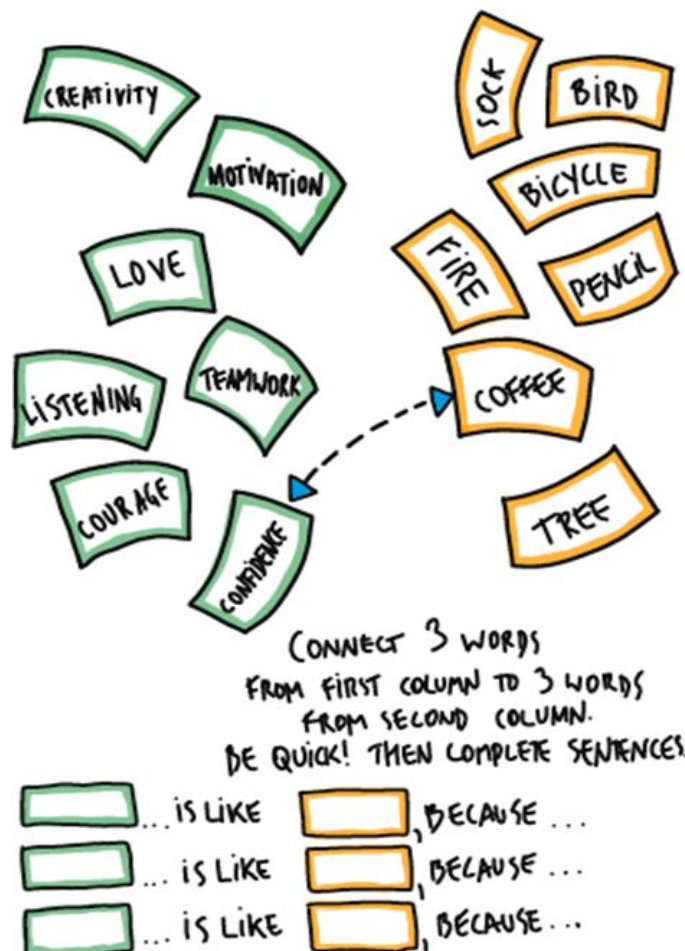 CREATIVITY
MOTIVATION
LOVE
TEAMWORK
LISTENING
COURAGE
CONFIDENCE
SOCK
BIRD
BICYCLE
FIRE
PENCIL
COFFEE
TREE
CONNECT 3 WORDS
FROM FIRST COLUMN TO 3 WORDS
FROM SECOND COLUMN.
BE QUICK! THEN COMPLETE SENTENCES
... IS LIKE , BECAUSE ...
... IS LIKE , BECAUSE ...
... IS LIKE , BECAUSE ...